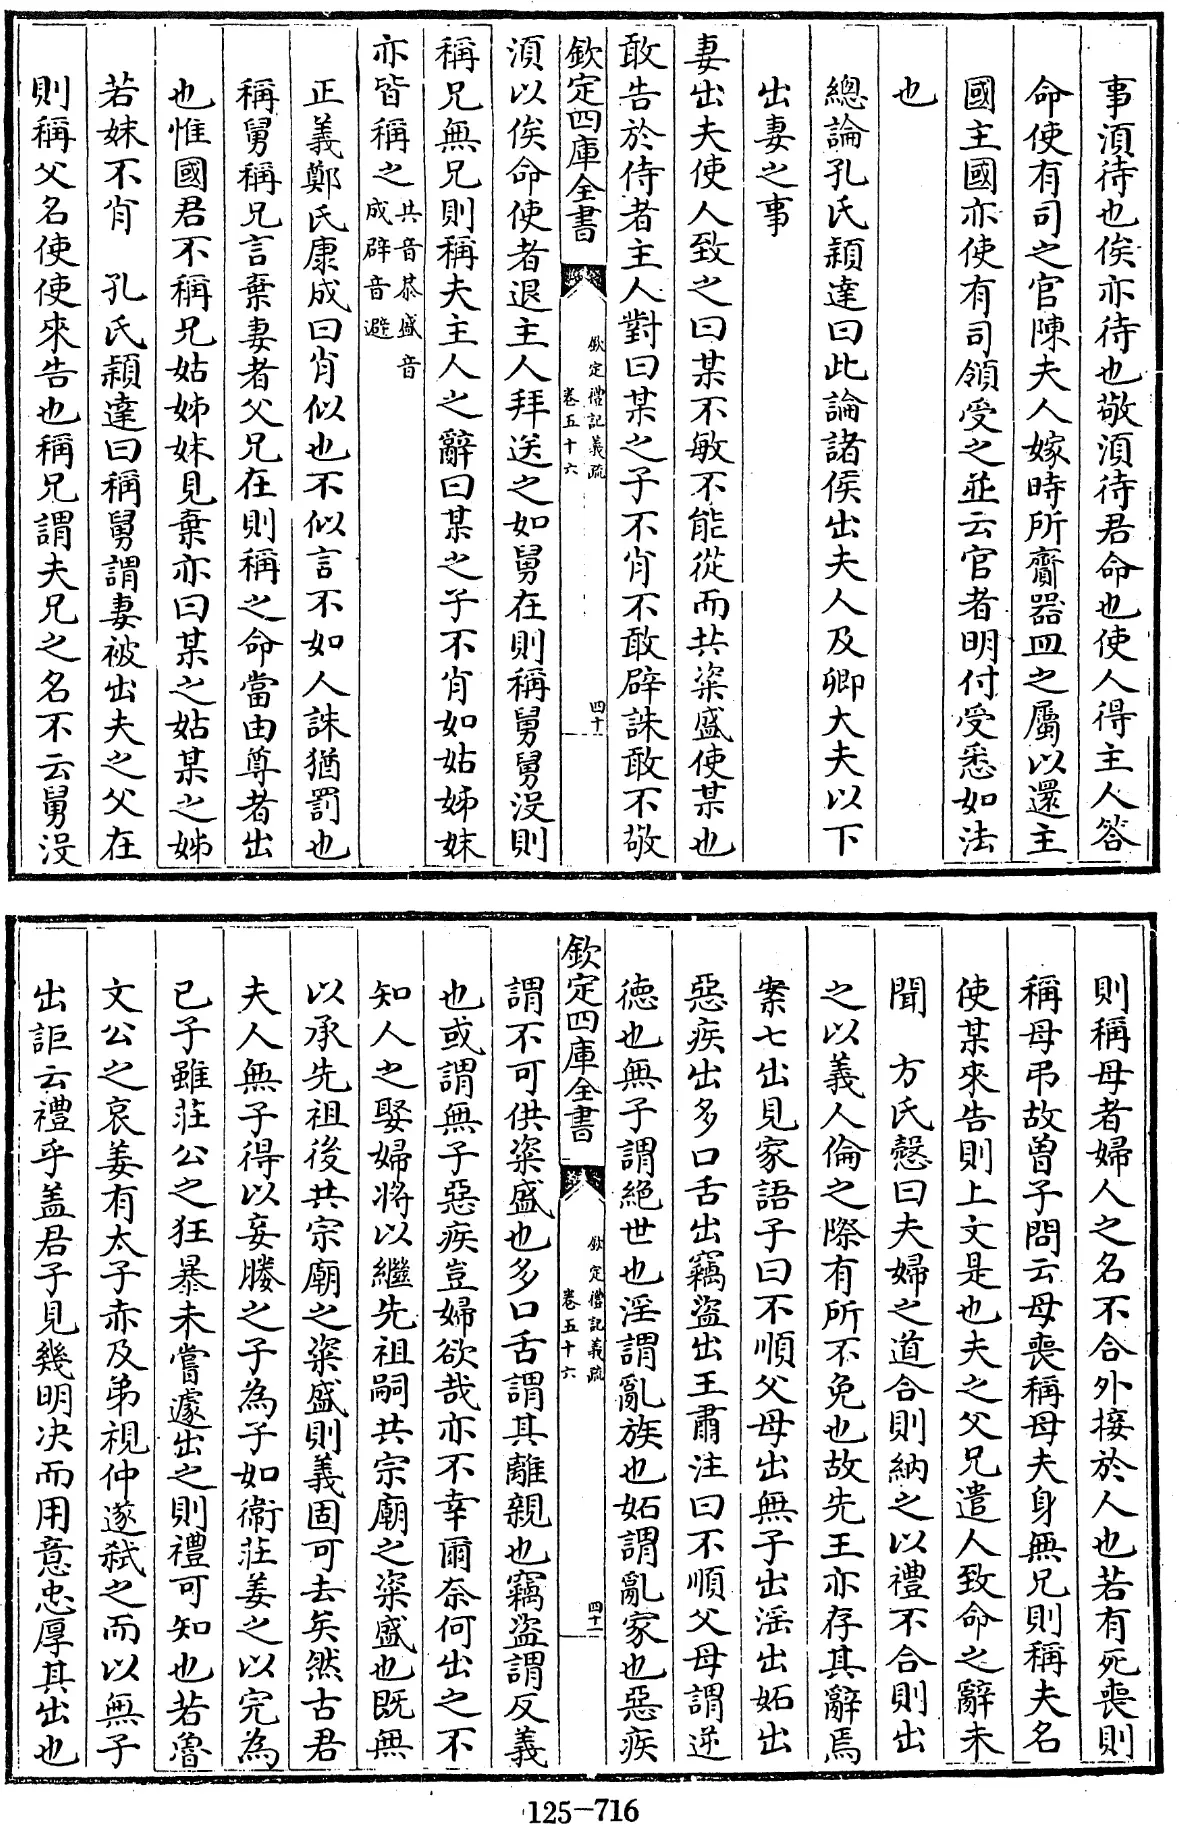 事湏待也俟亦待也敬湏待君命也使人得主人答
命使有司之官陳夫人嫁時所齎器皿之屬以還主
國主國亦使有司領受之並云官者明付受悉如法
也
總論孔氏穎達曰此論諸侯出夫人及卿大夫以下
出妻之事
妻出夫使人致之曰某不敏不能從而共粢盛使某也
敢告於侍者主人對曰某之子不肖不敢辟誅敢不敬
欽定四庫全書
欽定禮記義疏
卷五十六
四十
湏以俟命使者退主人拜送之如舅在則稱舅舅沒則
稱兄無兄則稱夫主人之辭曰某之子不肖如姑姊妹
亦皆稱之
共音恭盛音
成辟音避
正義鄭氏康成曰肖似也不似言不如人誅猶罰也
稱舅稱兄言棄妻者父兄在則稱之命當由尊者出
也惟國君不稱兄姑姊妹見棄亦曰某之姑某之姊
若妹不肖　孔氏穎達曰稱舅謂妻被出夫之父在
則稱父名使使來告也稱兄謂夫兄之名不云舅沒
則稱母者婦人之名不合外接於人也若有死喪則
稱母弔故曾子問云母喪稱母夫身無兄則稱夫名
使某來告則上文是也夫之父兄遣人致命之辭未
聞　方氏慤曰夫婦之道合則納之以禮不合則出
之以義人倫之際有所不免也故先王亦存其辭焉
案七出見家語子曰不順父母出無子出淫出妬出
惡疾出多口舌出竊盜出王肅注曰不順父母謂逆
德也無子謂絕世也淫謂亂族也妬謂亂家也惡疾
欽定四庫全書
欽定禮記義疏
卷五十六
四十一
謂不可供粢盛也多口舌謂其離親也竊盜謂反義
也或謂無子惡疾豈婦欲哉亦不幸爾奈何出之不
知人之娶婦將以繼先祖嗣共宗廟之粢盛也既無
以承先祖後共宗廟之粢盛則義固可去矣然古君
夫人無子得以妾媵之子為子如衛莊姜之以完為
已子雖莊公之狂暴未嘗遽出之則禮可知也若魯
文公之哀姜有太子赤及弟視仲遂弒之而以無子
出詎云禮乎盖君子見幾明决而用意忠厚其出也
125-716